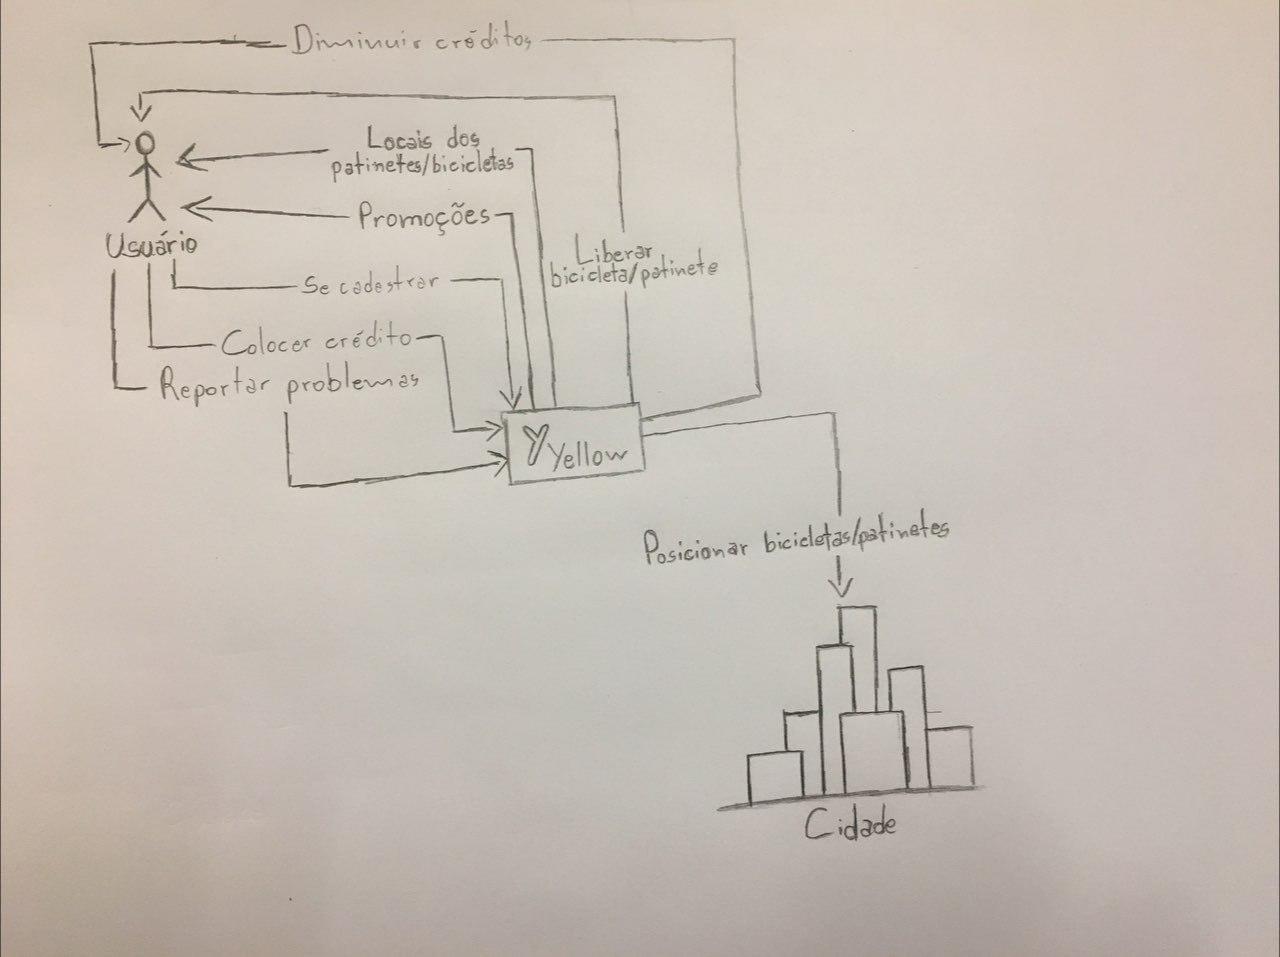 Diminuir créditos
Locais dos
patinetes/bicicletas
Promoções
Usuário
Liberar
bicicleta/patinete
Se cadastrar
Colocar crédito
Reportar problemas
Y Yellow
Posicionar bicicletas/patinetes
Cidade